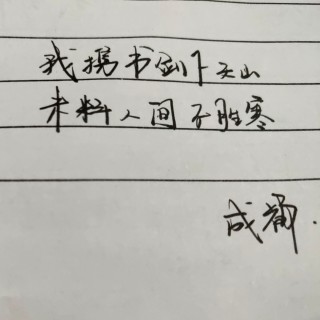 我携书剑下天山
未料人间不胜寒
成涌.